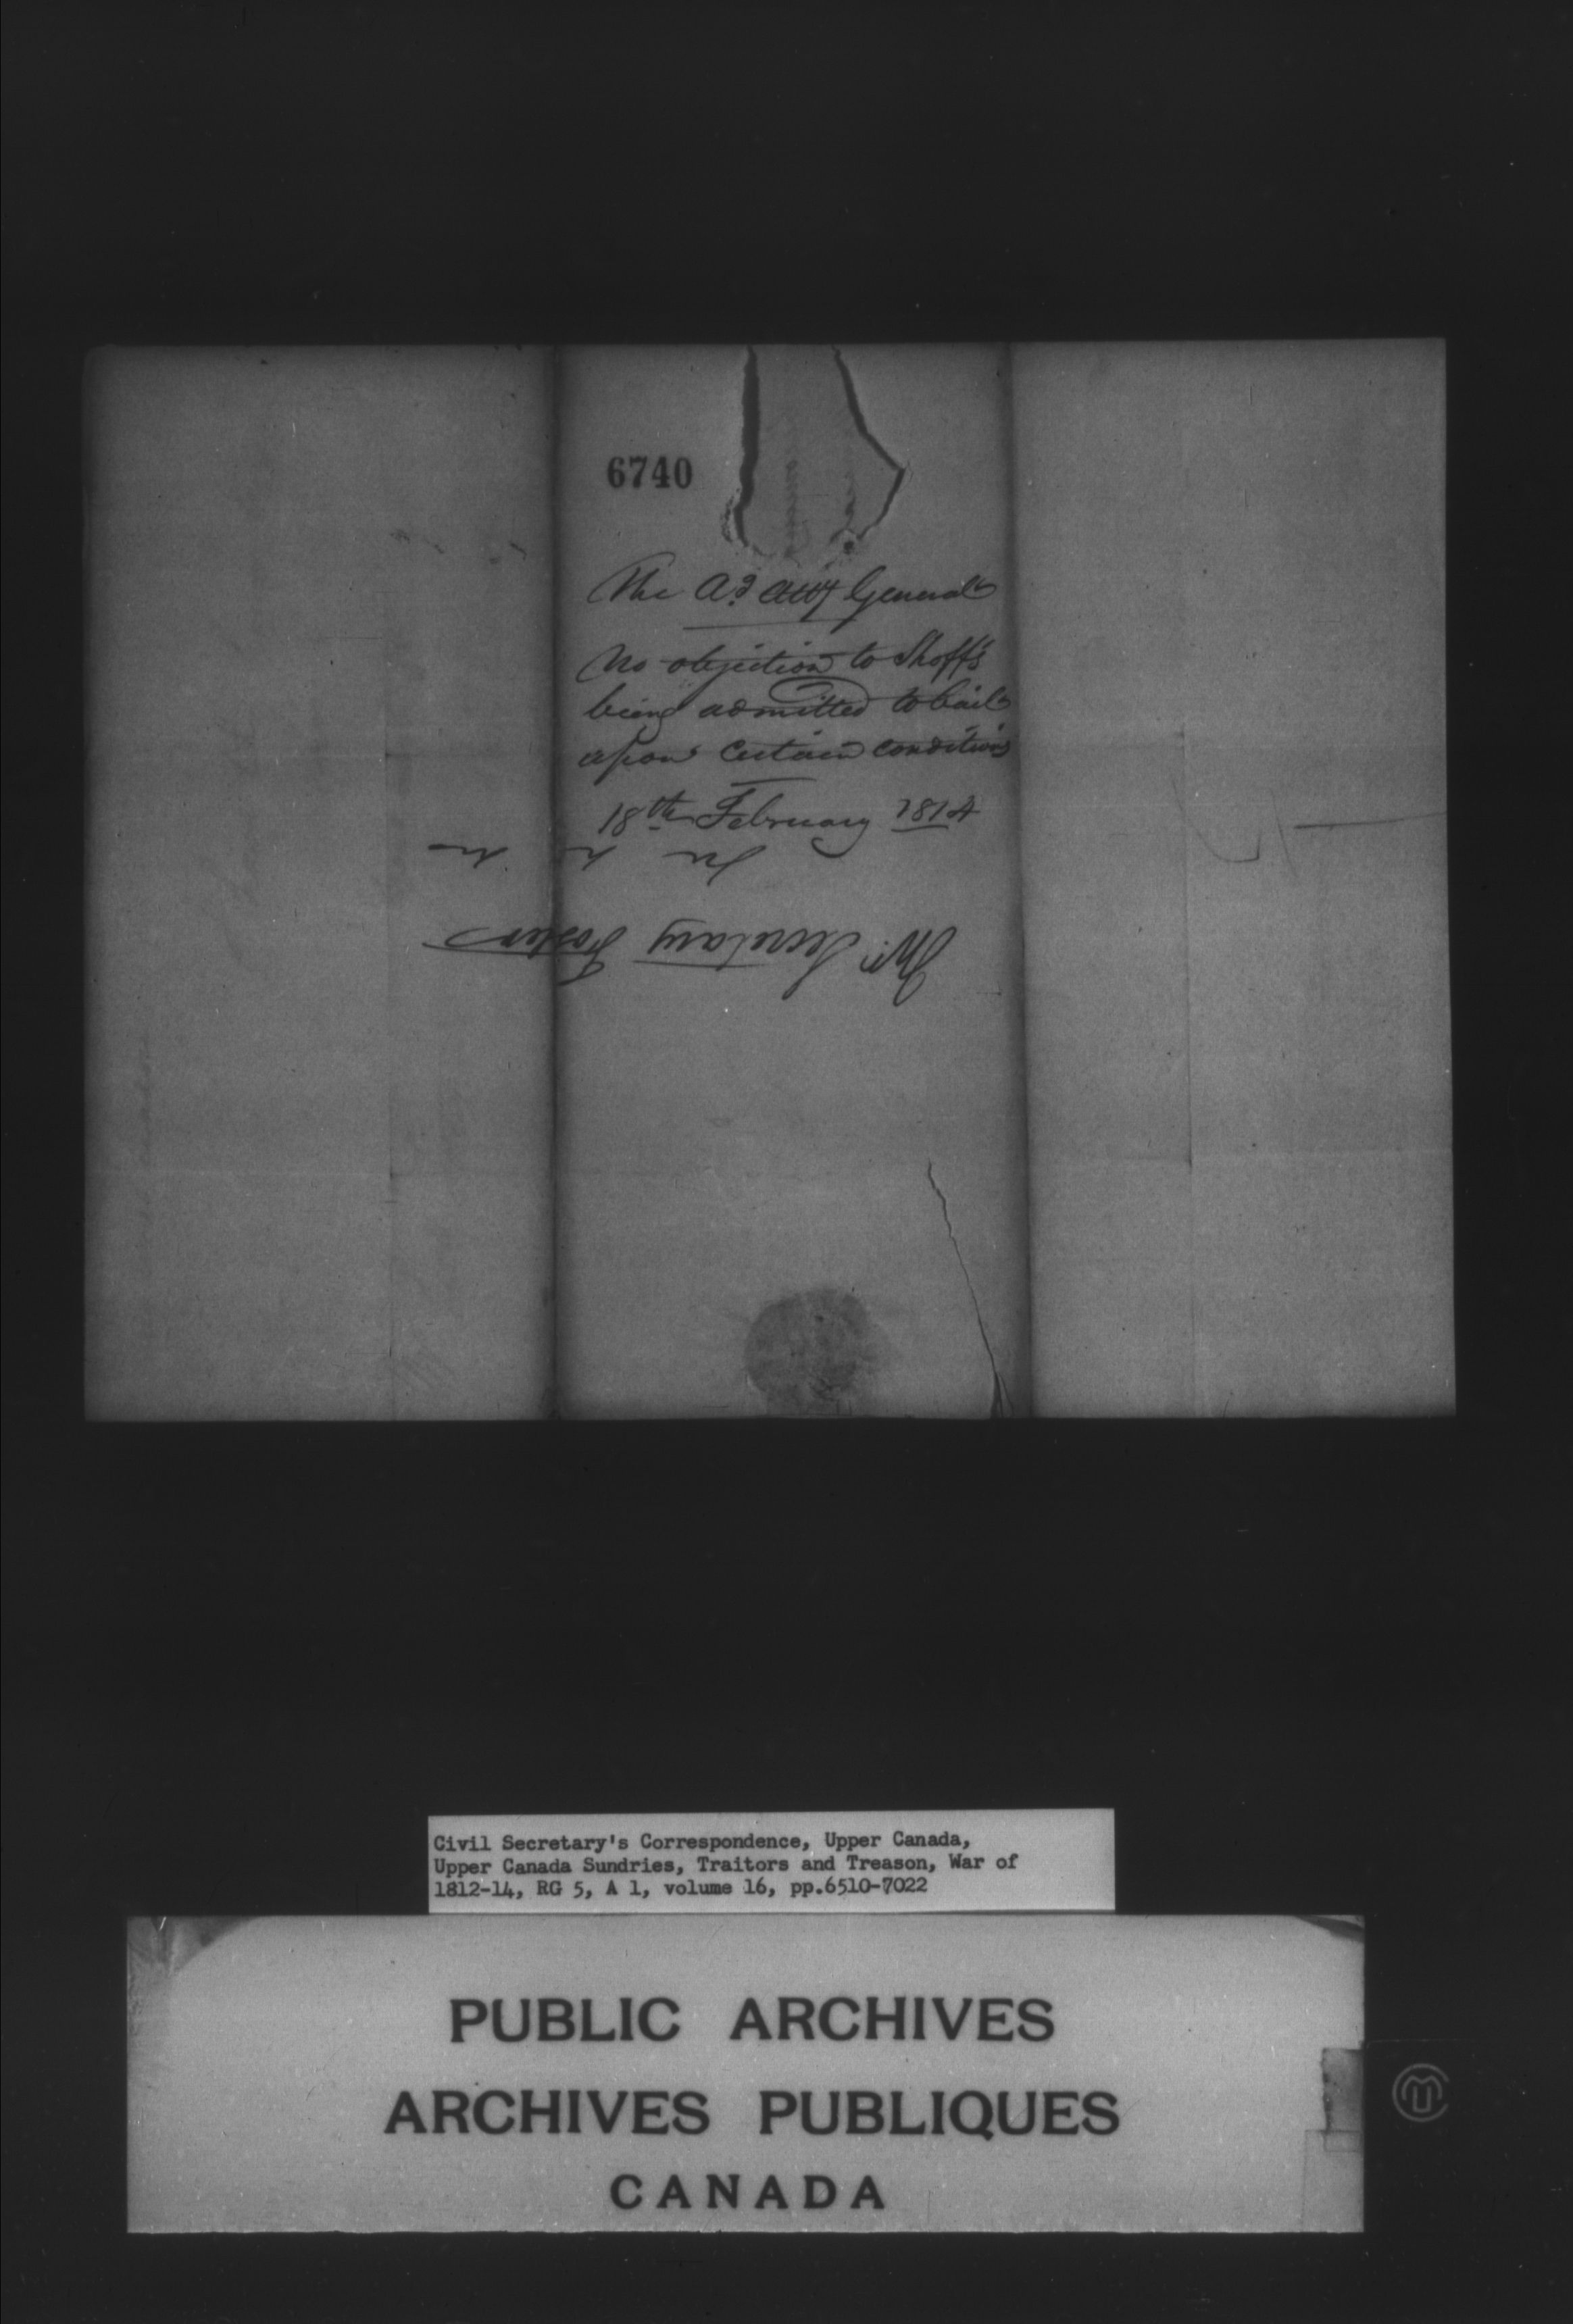 6740
The Ag Atty General
No objection to Shoff's
being admitted to bail
upon certain conditions
18th February 1814
Mr. Secretary Foster
Civil Secretary's Correspondence, Upper Canada,
Upper Canada Sundries, Traitors and Treason, War of
1812-14, RG 5, A 1, volume 16, pp.6510-7022
PUBLIC ARCHIVES
ARCHIVES PUBLIQUES
CANADA